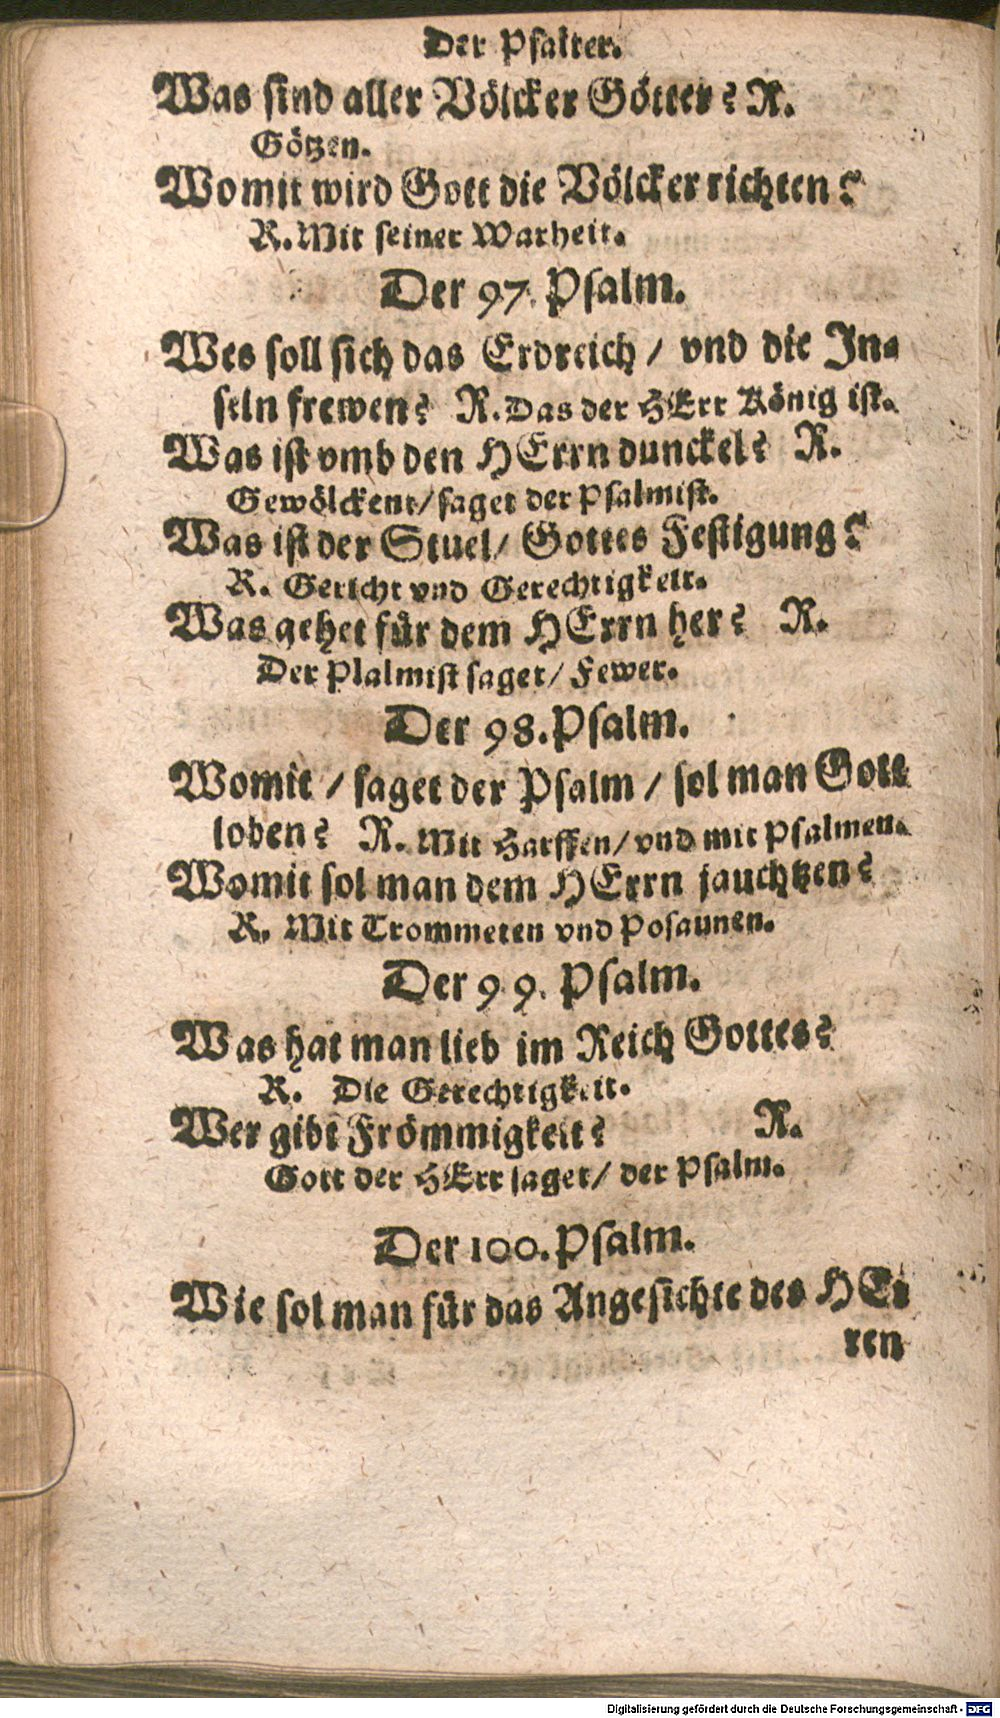 Der Psalter.
Was sind aller Völcker Götter? R.
Götzen.
Womit wird Gott die Völcker richten?
R. Mit seiner Warheit.
Der 97. Psalm.
Wes soll sich das Erdreich / vnd die In-
seln frewen? R. Das der HErr König ist.
Was ist vmb den HErrn dunckel? R.
Gewölckent / saget der Psalmist.
Was ist der Stuel / Gottes Festigung?
R. Gericht vnd Gerechtigkeit.
Was gehet für dem HErrn her? R.
Der Plalmist saget / Fewer.
Der 98. Psalm.
Womit / saget der Psalm / sol man Gott
loben? R. Mit Harffen / vnd mit Psalmen.
Womit sol man dem HErrn jauchtzen?
R. Mit Trommeten vnd Posaunen.
Der 99. Psalm.
Was hat man lieb im Reich Gottes?
R. Die Gerechtigkeit.
Wer gibt Frömmigkeit? R.
Gott der HErr saget / der Psalm.
Der 100. Psalm.
Wie sol man für das Angesichte des HEr
ren
Digitalisierung gefördert durch die Deutsche Forschungsgemeinschaft - DFG